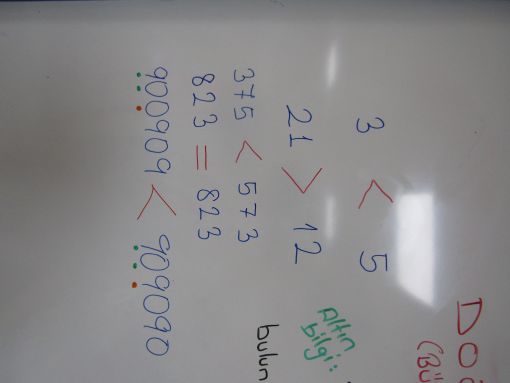 3 < 5
21 > 12
375 < 573
823 = 823
900909 < 909090
Altın
bilgi:
bulun